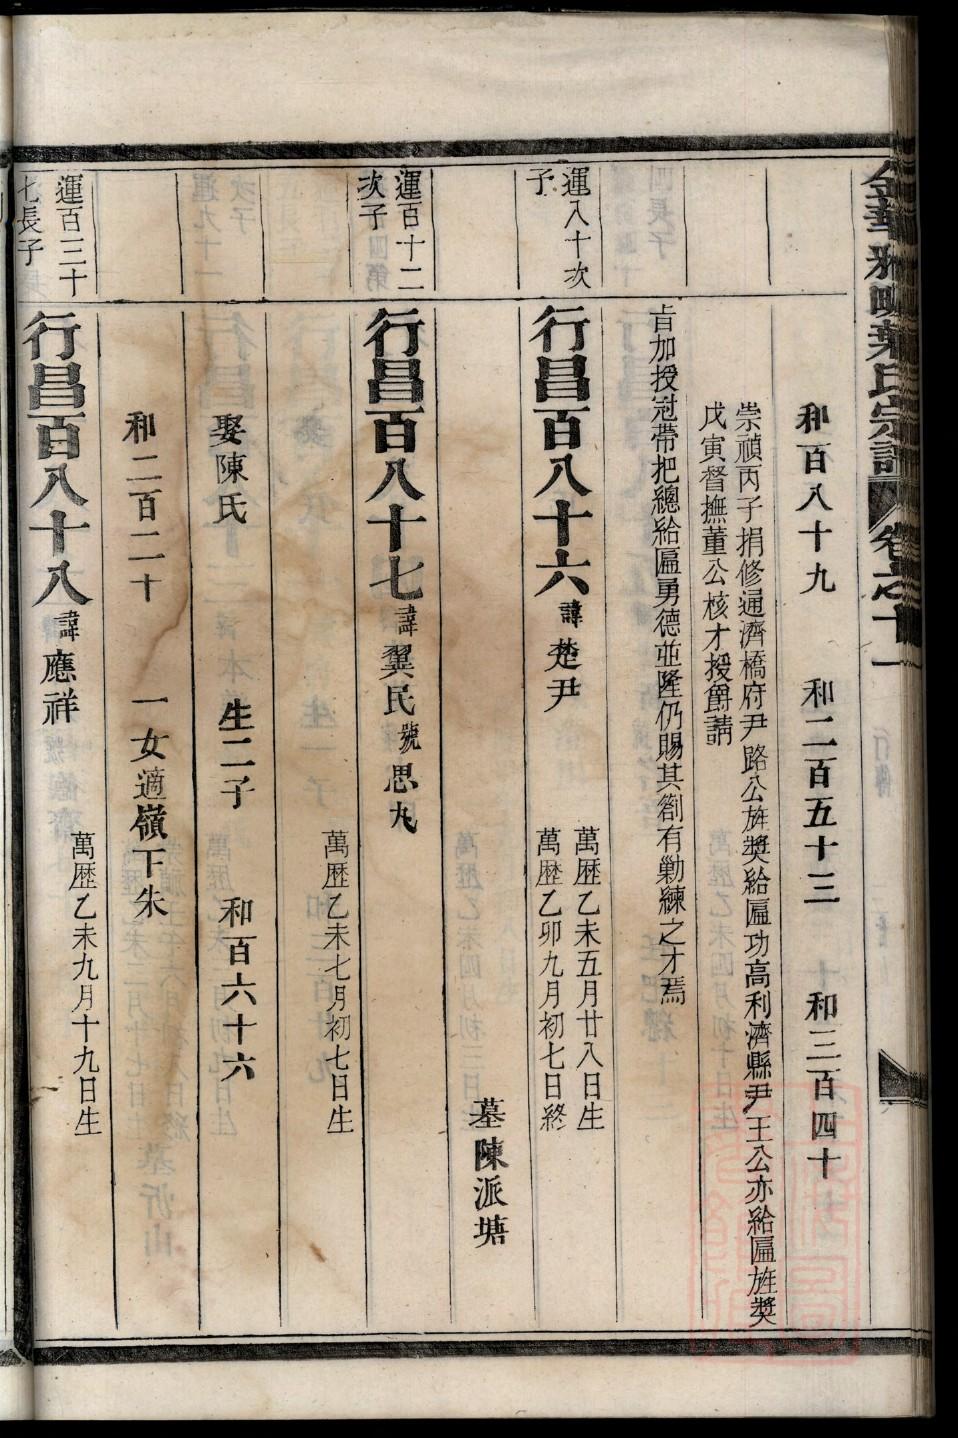 金華
葉氏宗譜
卷之十一
和百八十九　和二百五十三　和三百四十
崇禎丙子捐修通濟橋府尹路公旌獎給匾功高利濟縣尹王公亦給匾旌獎
戊寅督撫董公核才授爵請
旨加授冠帶把總給匾勇德並隆仍賜其劄有勦練之才焉
運八十次
子
行昌百八十六 諱楚尹
萬歷乙未五月廿八日生
萬歷乙卯九月初七日終
墓陳派塘
運百十二
次子
行昌百八十七 諱翼民 號思丸
萬歷乙未七月初七日生
娶陳氏　生二子　和百六十六
和二百二十　一女適嶺下朱
運百三十
七長子
行昌百八十八 諱應祥
萬歷乙未九月十九日生